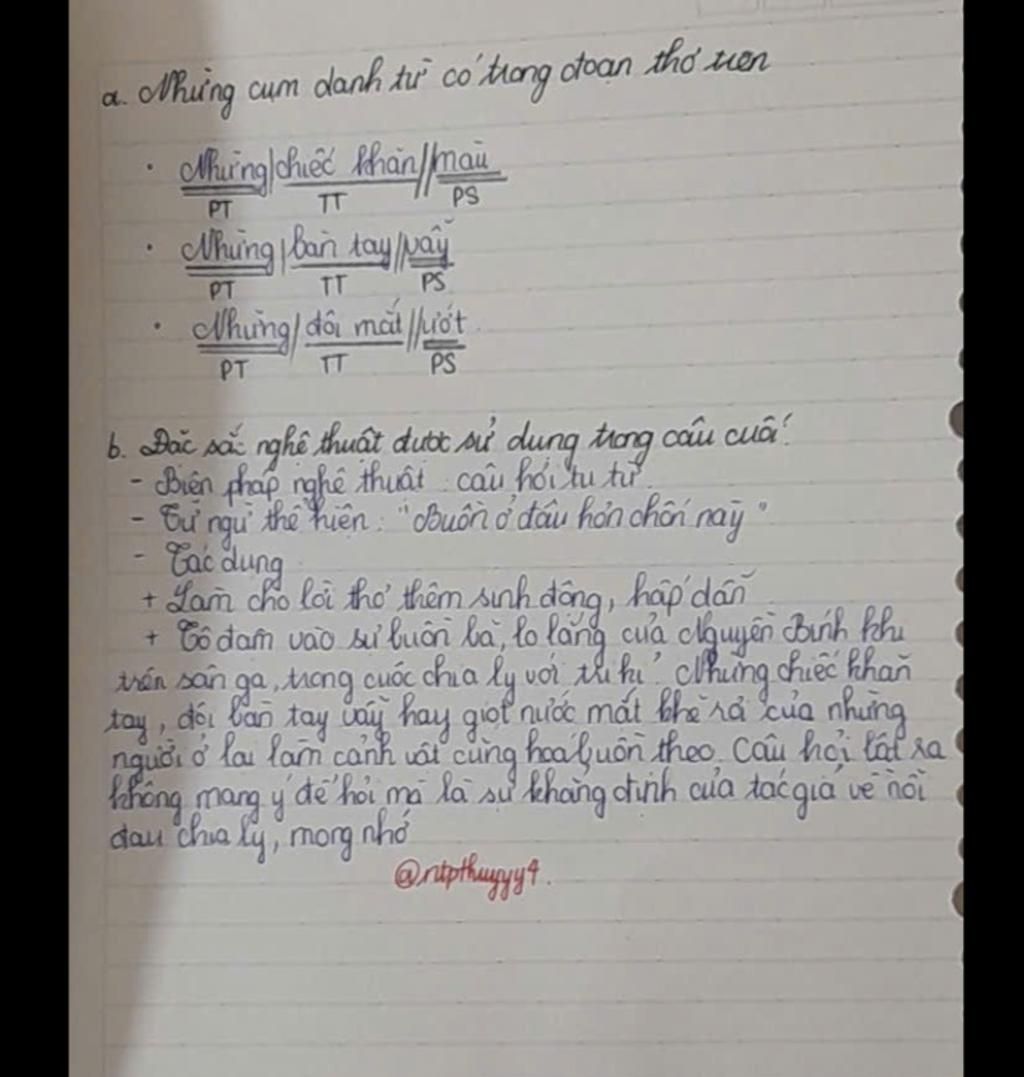 a. Những cụm danh từ có trong đoạn thơ trên
• Những/chiếc khăn//màu
PT TT PS
• Những/bàn tay//vẫy
PT TT PS
• Những/đôi mắt//ướt
PT TT PS
b. Đặc sắc nghệ thuật được sử dụng trong câu cuối:
- Biện pháp nghệ thuật: câu hỏi tu từ
- Từ ngữ thể hiện: "Buồn ở đâu hơn chốn này"
- Tác dụng
+ Làm cho lời thơ thêm sinh động, hấp dẫn
+ Tô đậm vào sự buồn bã, lo lắng của Nguyễn Bính khi
trên sân ga, trong cuộc chia ly với tri kỉ. Những chiếc khăn
tay, đôi bàn tay vẫy hay giọt nước mắt khẽ rả của những
người ở lại làm cảnh vật cũng hoá buồn theo. Câu hỏi bật ra
không mang ý để hỏi mà là sự khẳng định của tác giả về nỗi
đau chia ly, mong nhớ
@ntpthuyyy4.